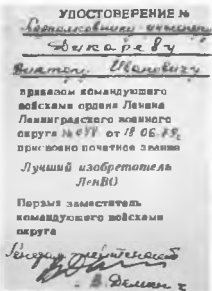 УДОСТОВЕРЕНИЕ №
Подполковнику-инженеру
Дикареву
Виктору Ивановичу
приказом командующего
войсками ордена Ленина
Ленинградского военного
округа № от 18 06 79г.
присвоено почетное звание
Лучший изобретатель
ЛенВО
Первый заместитель
командующего войсками
округа
Генерал